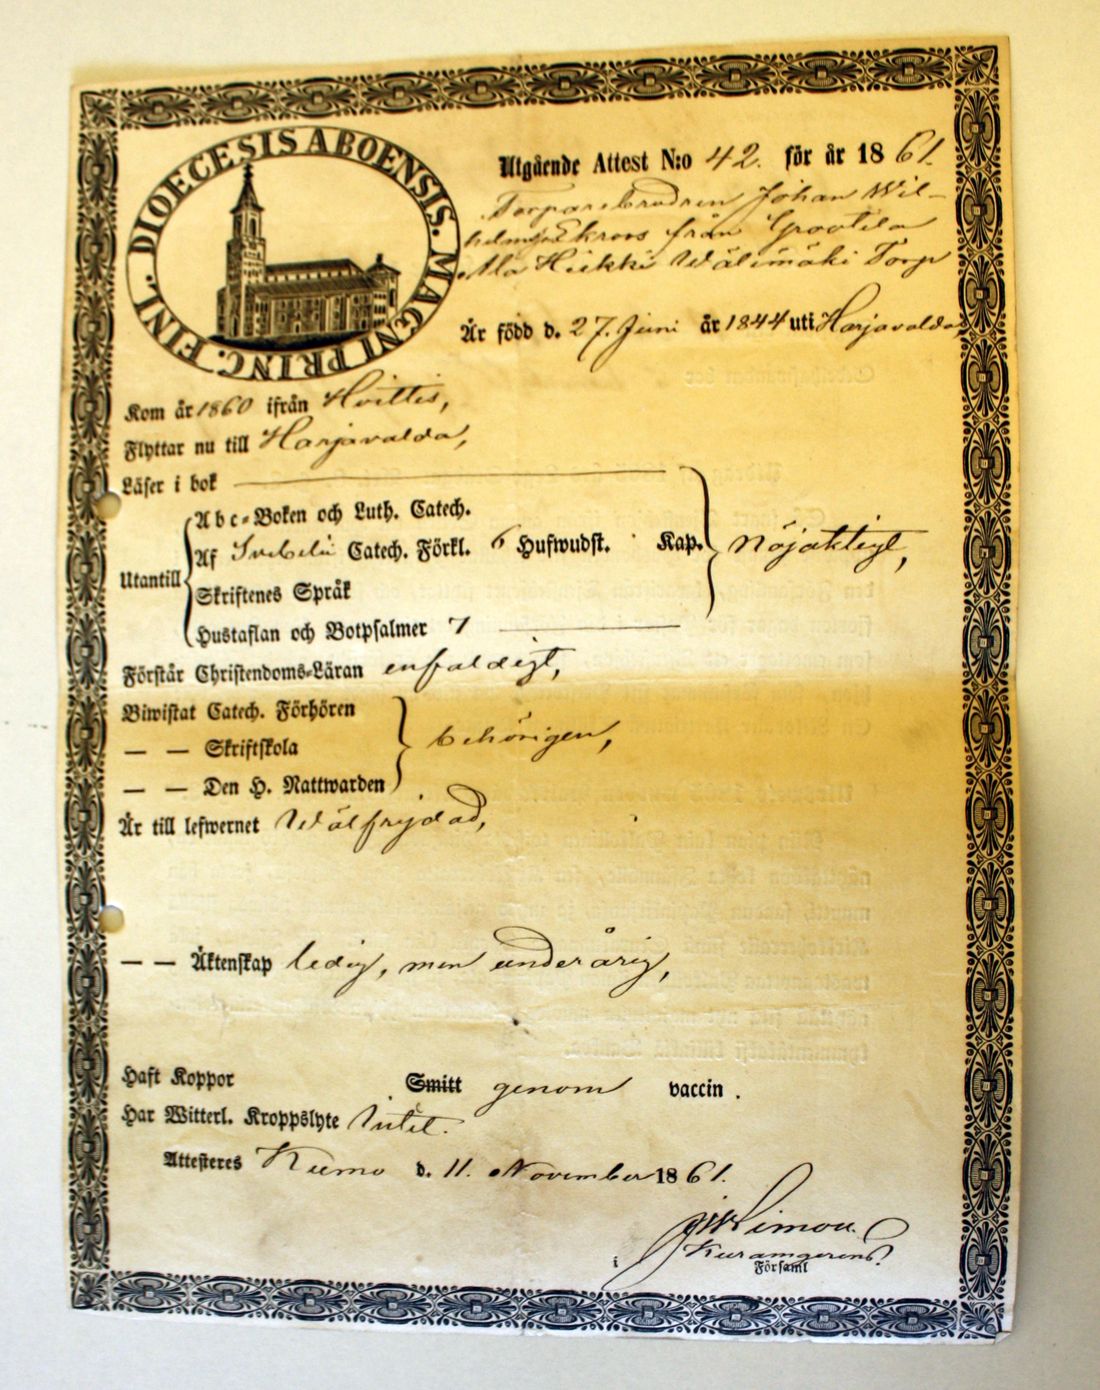 DIOECESIS ABOENSIS. MAGNI PRINC. FINL.
Utgående Attest N:o 42. för år 1861.
Torparebrodren Johan Wil-
helm Ekroos från Grootila
Ala Heikki Wälimäki Torp
Är född d. 27. Juni år 1844 uti Harjavalda,
Kom år 1860 ifrån Hvittis,
Flyttar nu till Harjavalda,
Läser i bok
Abc-Boken och Luth. Catech.
Utantill Af Svebelii Catech. Förkl. 6 Hufwudst. Kap. nöjaktigt,
Skriftenes Språk
Hustaflan och Botpsalmer 7
Förstår Christendoms-Läran enfaldigt,
Biwistat Catech. Förhören
— — Skriftskola behörigen,
— — Den H. Nattwarden
Är till lefwernet Wälfrejdad,
— — Äktenskap ledig, men underårig,
Haft Koppor Smitt genom vaccin.
Har Witterl. Kroppslyte Intet.
Attesteres Kumo d. 11. November 1861.
i Församl